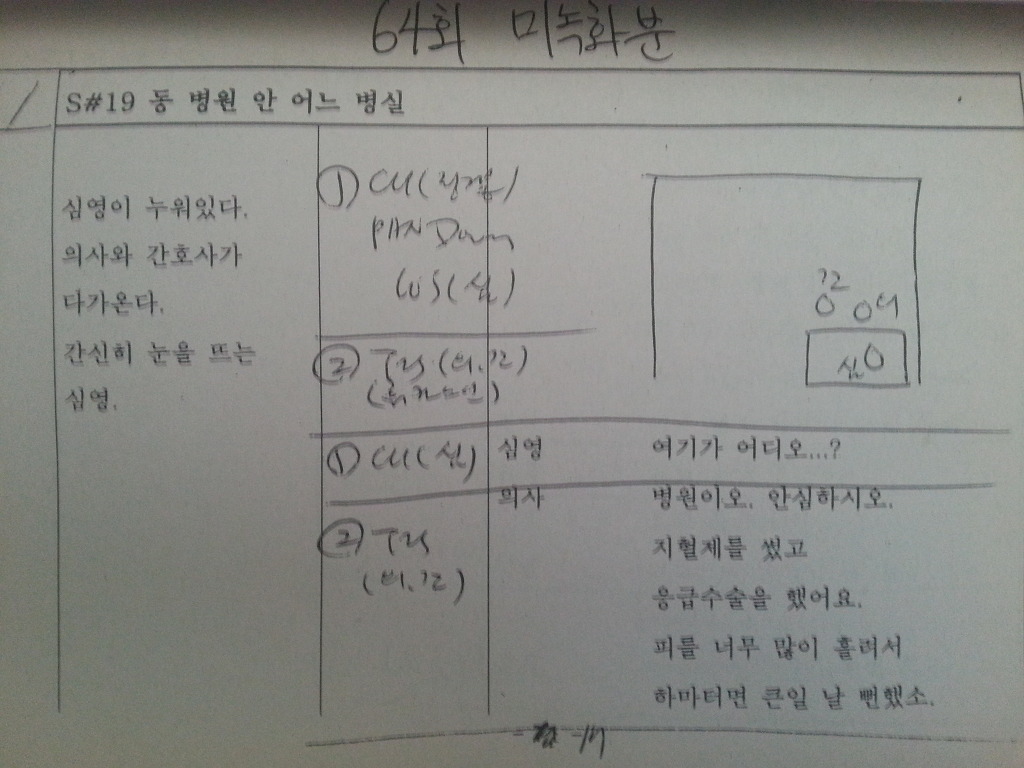 64회 미녹화분
S#19 동 병원 안 어느 병실
심영이 누워있다.
의사와 간호사가
다가온다.
간신히 눈을 뜨는
심영.
① CU(링겔)
PAN Down
WS(심)
② T2S (의.간)
① CU(심)
② T2S
(의.간)
간
의
심
심영 여기가 어디오...?
의사 병원이오. 안심하시오.
지혈제를 썼고
응급수술을 했어요.
피를 너무 많이 흘려서
하마터면 큰일 날 뻔했소.